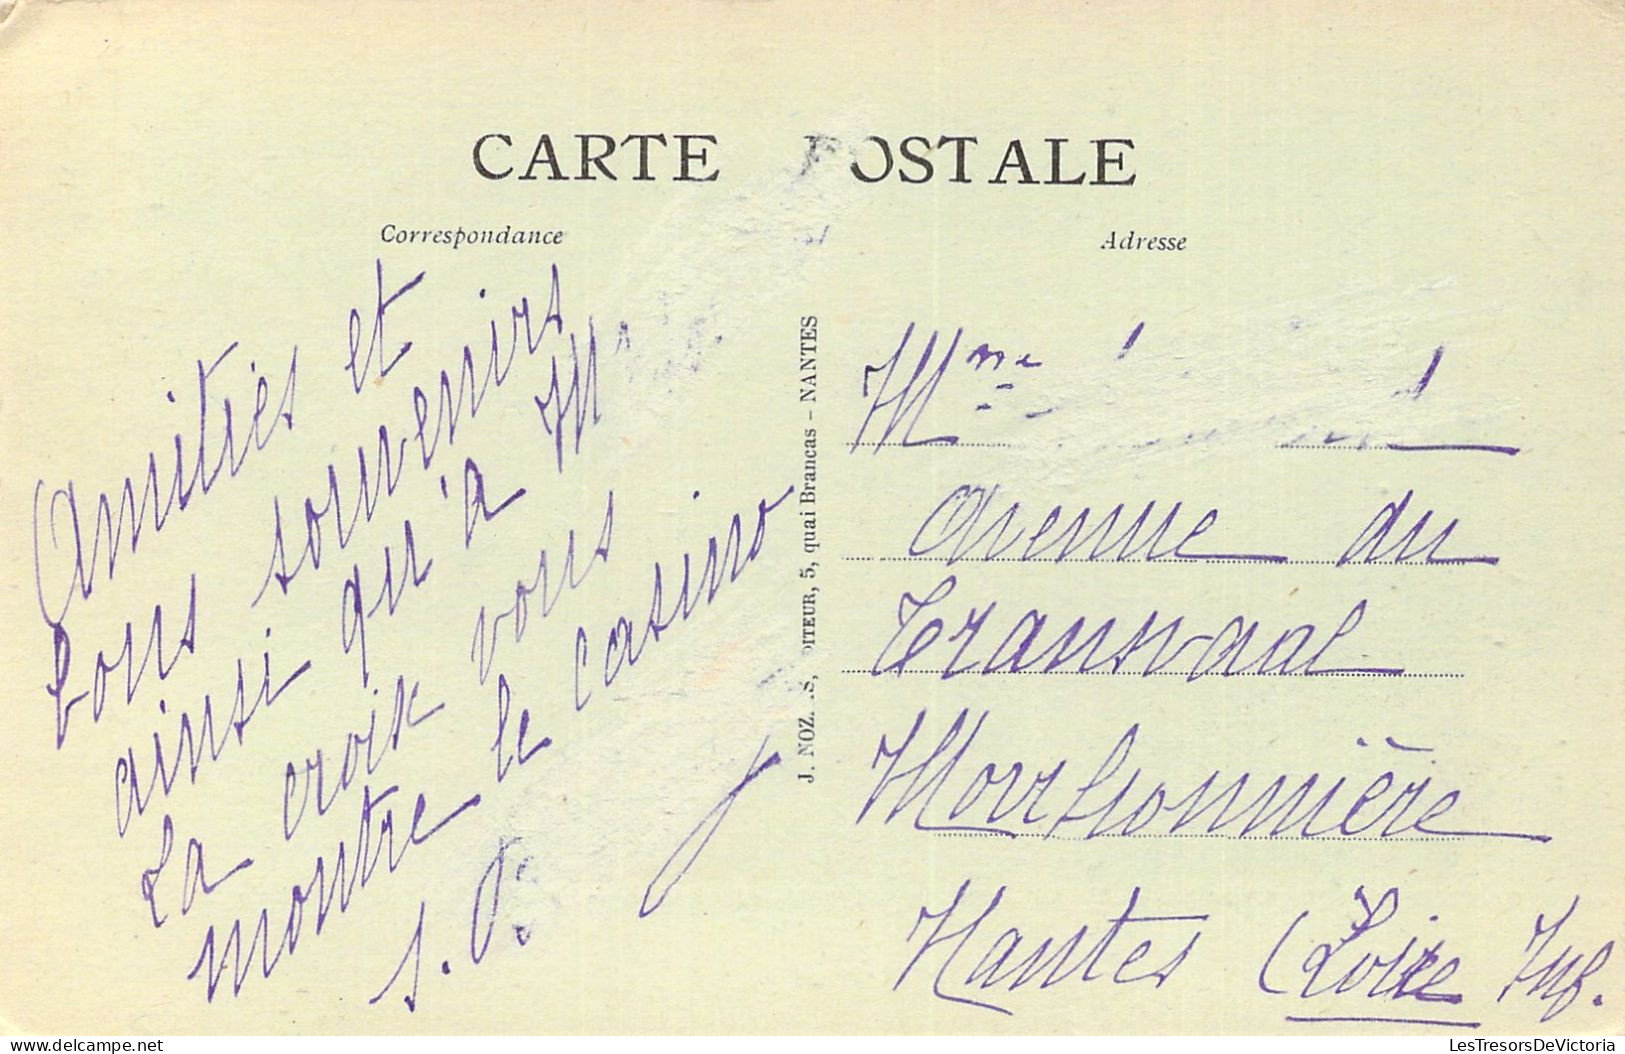 CARTE POSTALE
Correspondance
Adresse
Amitiés et
bons souvenirs
ainsi qu'à M
La croix vous
montre le casino
s.
J. NOZAIS, EDITEUR, 5, quai Brancas - NANTES
Mme
avenue du
Transvaal
Morrhonnière
Nantes (Loire Inf.
LesTresorsDeVictoria